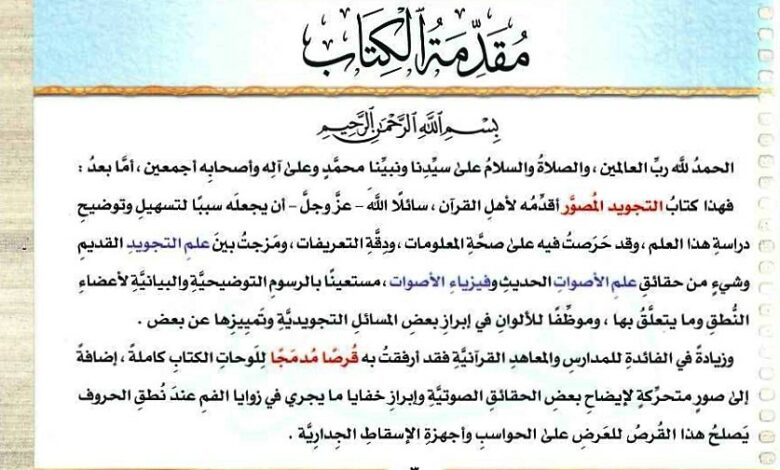 مُقَدِّمَةُ ٱلْكِتَابِ
بِسْمِ ٱللَّهِ ٱلرَّحْمَٰنِ ٱلرَّحِيمِ
الحمدُ لله ربِّ العالمين ، والصلاةُ والسلامُ علىٰ سيِّدِنا ونبيِّنا محمَّدٍ وعلىٰ آلِه وأصحابِه أجمعين ، أمَّا بعدُ :
فهذا كتابُ التجويد المُصوَّر أقدِّمُه لأهلِ القرآن ، سائلًا اللهَ - عزَّ وجلَّ - أن يجعلَه سببًا لتسهيلِ وتوضيحِ
دراسةِ هذا العلم ، وقد حَرَصتُ فيه علىٰ صحَّةِ المعلومات ، ودِقَّةِ التعريفات ، ومَزجتُ بينَ علمِ التجويدِ القديمِ
وشيءٍ من حقائقِ علمِ الأصواتِ الحديثِ وفيزياءِ الأصوات ، مستعينًا بالرسومِ التوضيحيَّةِ والبيانيَّةِ لأعضاءِ
النُّطقِ وما يتعلَّقُ بها ، وموظِّفًا للألوانِ في إبرازِ بعضِ المسائلِ التجويديَّةِ وتَمييزِها عن بعض .
وزيادةً في الفائدةِ للمدارسِ والمعاهدِ القرآنيَّةِ فقد أرفقتُ به قُرصًا مُدمَجًا لِلَوحاتِ الكتابِ كاملةً ، إضافةً
إلىٰ صورٍ متحرِّكةٍ لإيضاحِ بعضِ الحقائقِ الصوتيَّةِ وإبرازِ خفايا ما يجري في زوايا الفمِ عندَ نُطقِ الحروف
يَصلحُ هذا القُرصُ للعَرضِ علىٰ الحواسبِ وأجهزةِ الإسقاطِ الجِداريَّة .